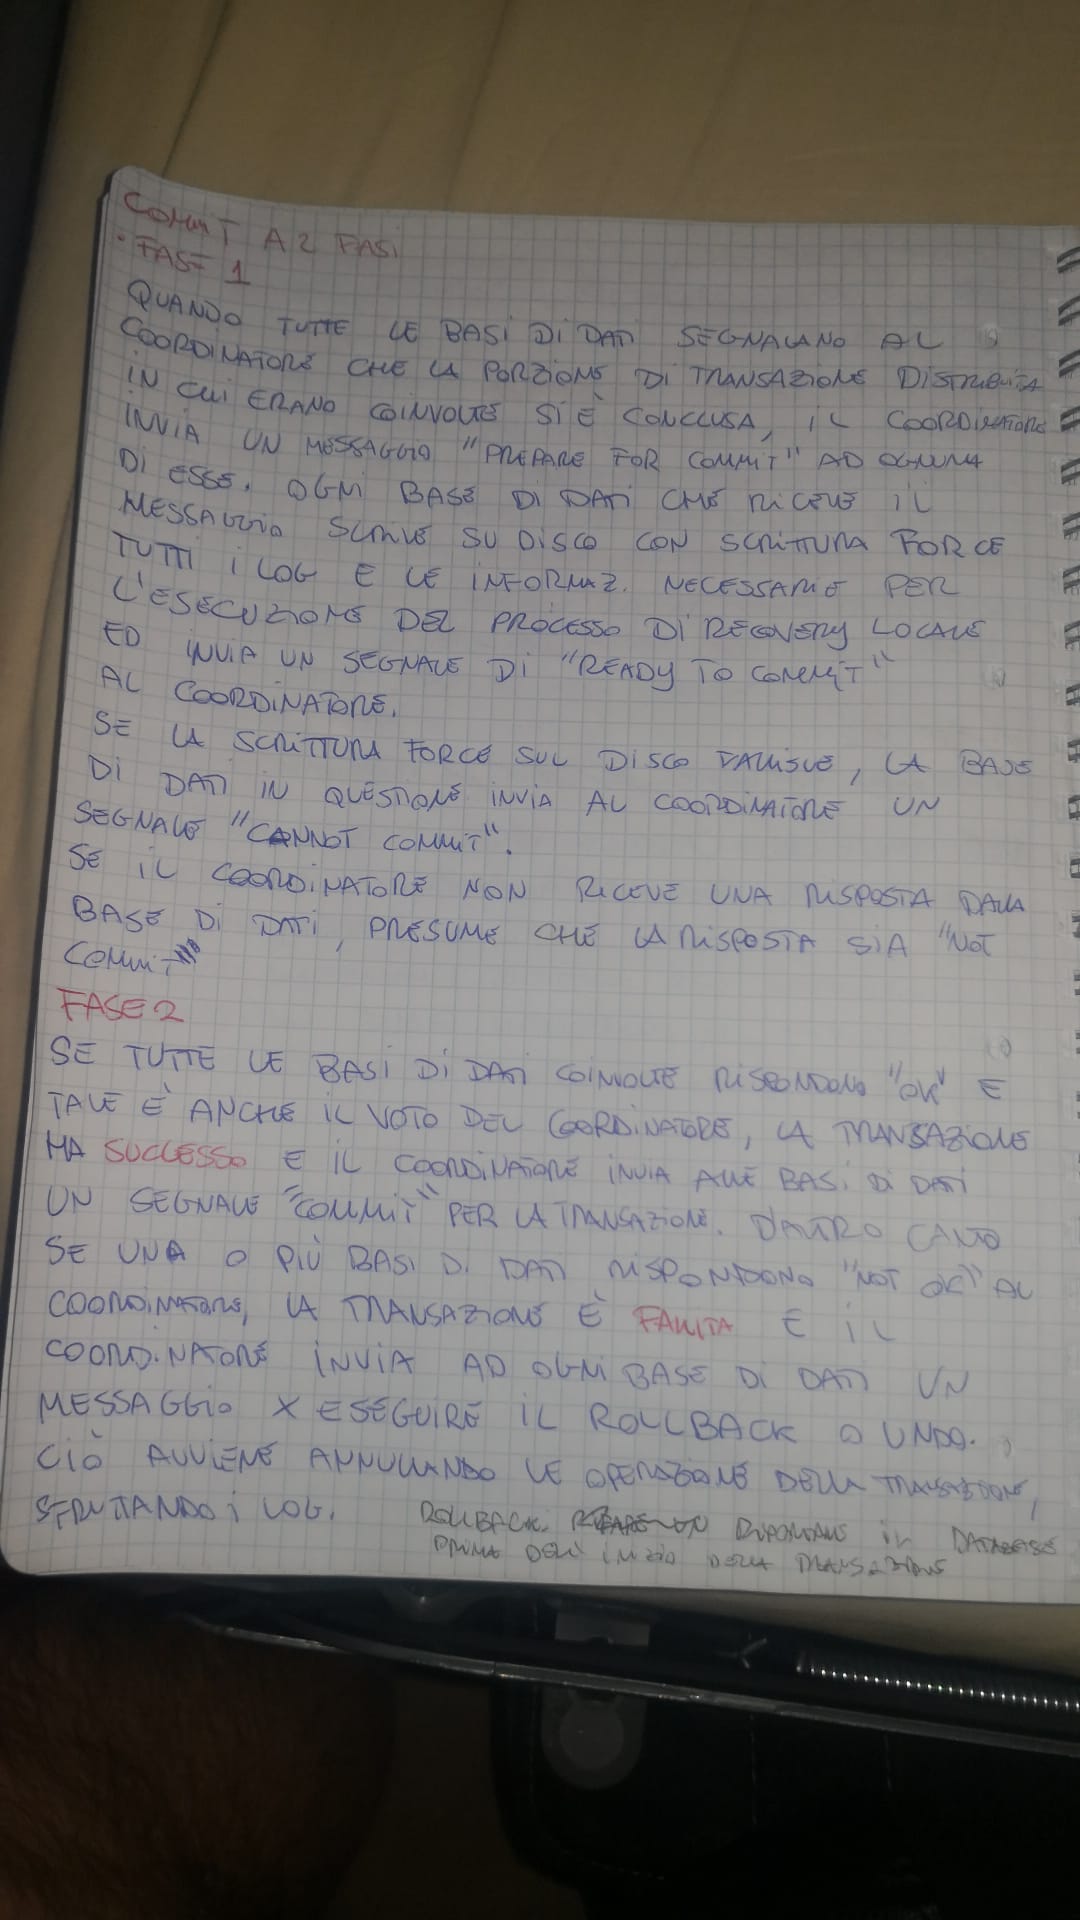 COMMIT A 2 FASI
· FASE 1
QUANDO TUTTE LE BASI DI DATI SEGNALANO AL
COORDINATORE CHE LA PORZIONE DI TRANSAZIONE DISTRIBUITA
IN CUI ERANO COINVOLTE SI È CONCLUSA, IL COORDINATORE
INVIA UN MESSAGGIO "PREPARE FOR COMMIT" AD OGNUNA
DI ESSE. OGNI BASE DI DATI CHE RICEVE IL
MESSAGGIO SCRIVE SU DISCO CON SCRITTURA FORCE
TUTTI I LOG E LE INFORMAZ. NECESSARIE PER
L'ESECUZIONE DEL PROCESSO DI RECOVERY LOCALE
ED INVIA UN SEGNALE DI "READY TO COMMIT"
AL COORDINATORE.
SE LA SCRITTURA FORCE SUL DISCO FALLISCE, LA BASE
DI DATI IN QUESTIONE INVIA AL COORDINATORE UN
SEGNALE "CANNOT COMMIT".
SE IL COORDINATORE NON RICEVE UNA RISPOSTA DALLA
BASE DI DATI, PRESUME CHE LA RISPOSTA SIA "NOT
COMMIT"
FASE 2
SE TUTTE LE BASI DI DATI COINVOLTE RISPONDONO "OK" E
TALE È ANCHE IL VOTO DEL COORDINATORE, LA TRANSAZIONE
HA SUCCESSO E IL COORDINATORE INVIA ALLE BASI DI DATI
UN SEGNALE "COMMIT" PER LA TRANSAZIONE. D'ALTRO CANTO
SE UNA O PIÙ BASI DI DATI RISPONDONO "NOT OK" AL
COORDINATORE, LA TRANSAZIONE È FALLITA E IL
COORDINATORE INVIA AD OGNI BASE DI DATI UN
MESSAGGIO X ESEGUIRE IL ROLLBACK O UNDO.
CIÒ AVVIENE ANNULLANDO LE OPERAZIONE DELLA TRANSAZIONE,
SFRUTTANDO I LOG. ROLLBACK: RIPORTARE IL DATABASE
PRIMA DELL'INIZIO DELLA TRANSAZIONE